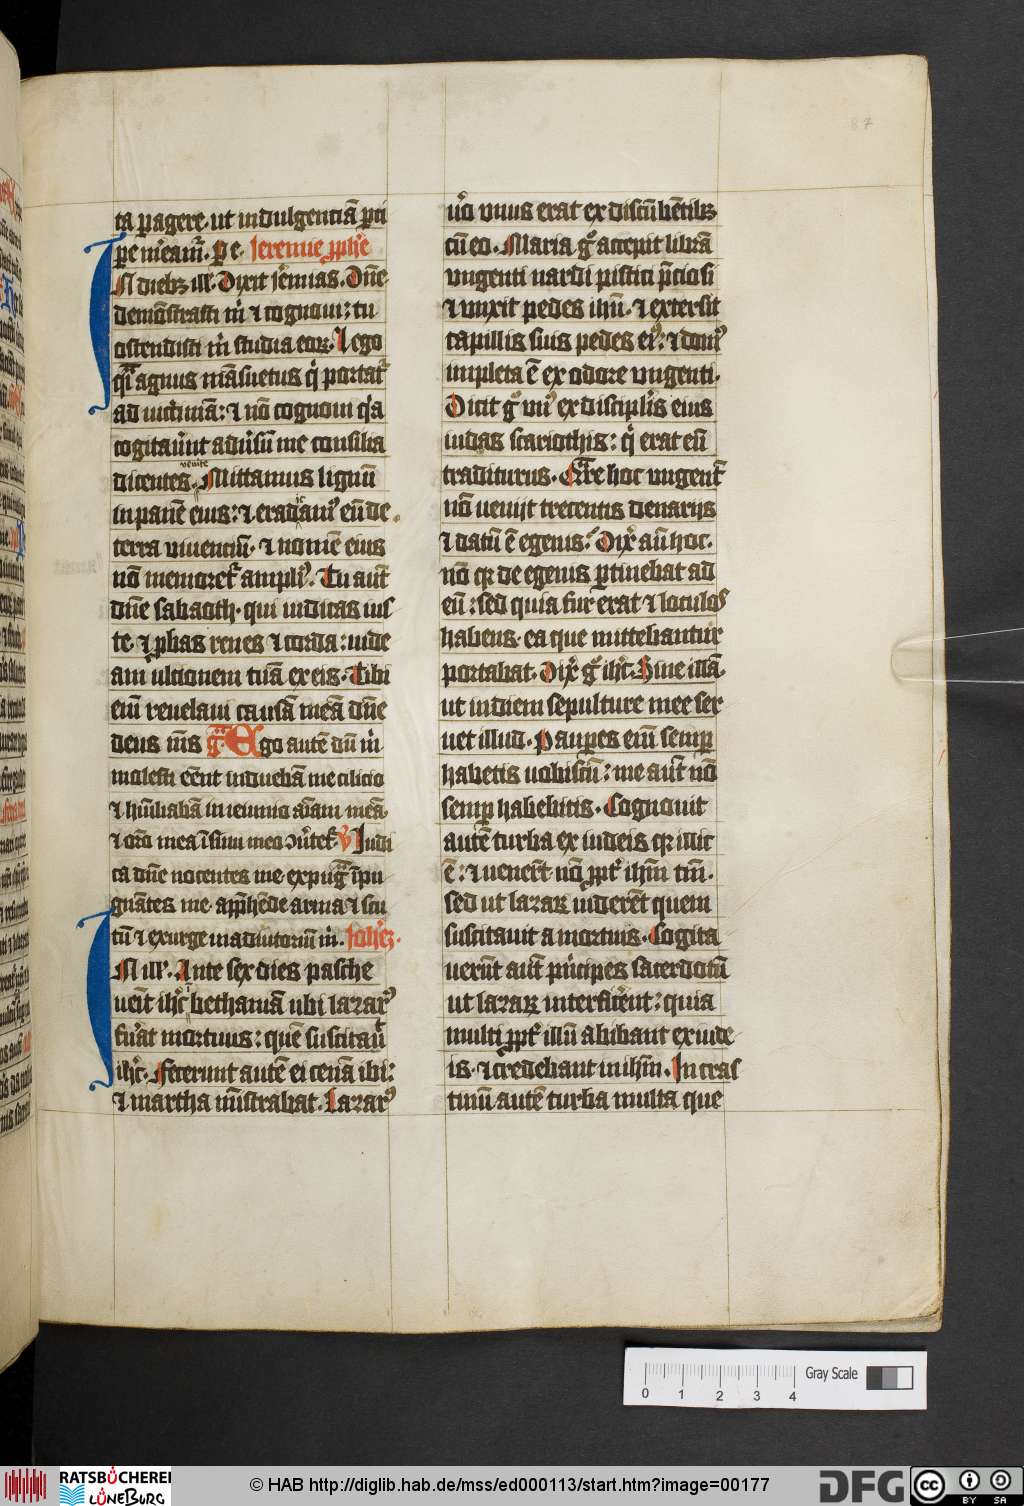 87
ta pagere. ut indulgenciā pcī
pe mẽamͬ. Pe. Jeremie ꝓphe
In diebꝫ ill̓. Dixit Jeͬmias. Dn̄e
demōstrasti m̓ ⁊ cognoui: tu
ostendisti m̓ studia eoꝝ. ⁊ ego
qͣi agnus māsuetus q̓ portatͬ
ad uictimā: ⁊ nō cognoui qͥa
cogitaueͬnt aduͬsū me consilia
venite
dicentes. Mittamus lignū
in panē eius: ⁊ eradamꝰ eū de
terra uiuenciū. ⁊ nomē eius
nō memoretͬ ampliꝰ. Tu autͤ
dn̄e sabaoth. qui iudicas ius
te. ⁊ ꝓbas renes ⁊ corda: uide
am ultionem tuā ex eis. Tibi
em̄ reuelaui causā meā dn̄e
deus m̄s gͣ. Ego autē dū m̓
molesti eēnt induebā me cilicio
⁊ hūiliabā in ieiunio aīam meā
⁊ orō mea ī sinu meo ꝯuͬtetͬ. V̓ Iudi
ca dn̄e nocentes me expugͣ īpu
gnātes me. appͬhēde arma ⁊ scu
tū ⁊ exurge in adiutoriū m̓. Johēs.
In ill̓. Ante sex dies pasche
uēit ihc̓ bethaniā ubi lazarꝰ
fuͬat mortuus: quē suscitauͭ
ihc̓. Fecerunt autē ei cenā ibi:
⁊ martha mīstrabat. Lazarꝰ
uͦo vnus erat ex discūbētibꝫ
cū eo. Maria gͦ accepit librā
vngenti nardi pistici pͨciosi
⁊ vnxit pedes ihū. ⁊ extersit
capillis suis pedes eiꝰ: ⁊ domꝰ
impleta ē ex odore vngenti.
Dicit gͦ vnꝰ ex discipl̓is eius
iudas scariothis: q̓ erat eū
traditurus. Qͣre hoc vngentͫ
nō uenijt trecentis denarijs
⁊ datū ē egenis. Dixͭ aū hoc.
nō qꝛ de egenis ꝑtinebat ad
eū: sed quia fur erat ⁊ loculos
habens. ea que mittebantur
portabat. Dixͭ gͦ ihc̓. Sine illā.
ut in diem sepulture mee ser
uet illud. Pauꝑes em̄ semꝑ
habetis uobiscū: me autͤ nō
semꝑ habebitis. Cognouit
autē turba ex iudeis qꝛ illic
ē: ⁊ ueneͬt nō ꝓpͭ ihm̄ tm̄.
sed ut lazaꝝ uiderēt quem
suscitauit a mortuis. Cogita
ueruͭnt autͤ pͥncipes sacerdotū
ut lazaꝝ interficeͬnt: quia
multi ꝓpͭ illū abibant ex iude
is. ⁊ credebant in ihm̄. In cras
tinū autē turba multa que
Gray Scale
0 1 2 3 4
RATSBÜCHEREI
LÜNEBURG
© HAB http://diglib.hab.de/mss/ed000113/start.htm?image=00177
DFG
cc BY SA